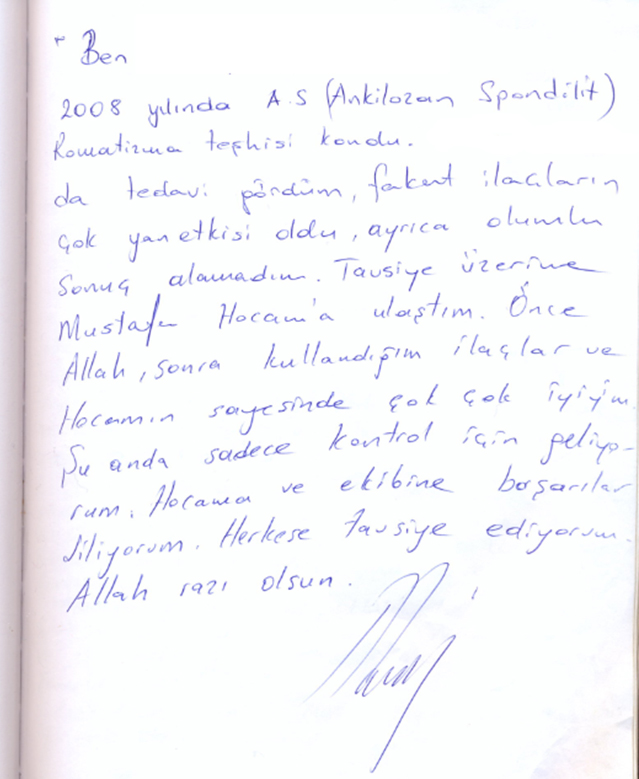 Ben
2008 yılında A.S (Ankilozan Spondilit)
Romatizma teşhisi kondu.
da tedavi gördüm, fakat ilaçların
çok yan etkisi oldu, ayrıca olumlu
sonuç alamadım. Tavsiye üzerine
Mustafa Hocam'a ulaştım. Önce
Allah, sonra kullandığım ilaçlar ve
Hocamın sayesinde çok çok iyiyim.
Şu anda sadece kontrol için geliyo-
rum. Hocama ve ekibine başarılar
diliyorum. Herkese tavsiye ediyorum.
Allah razı olsun.